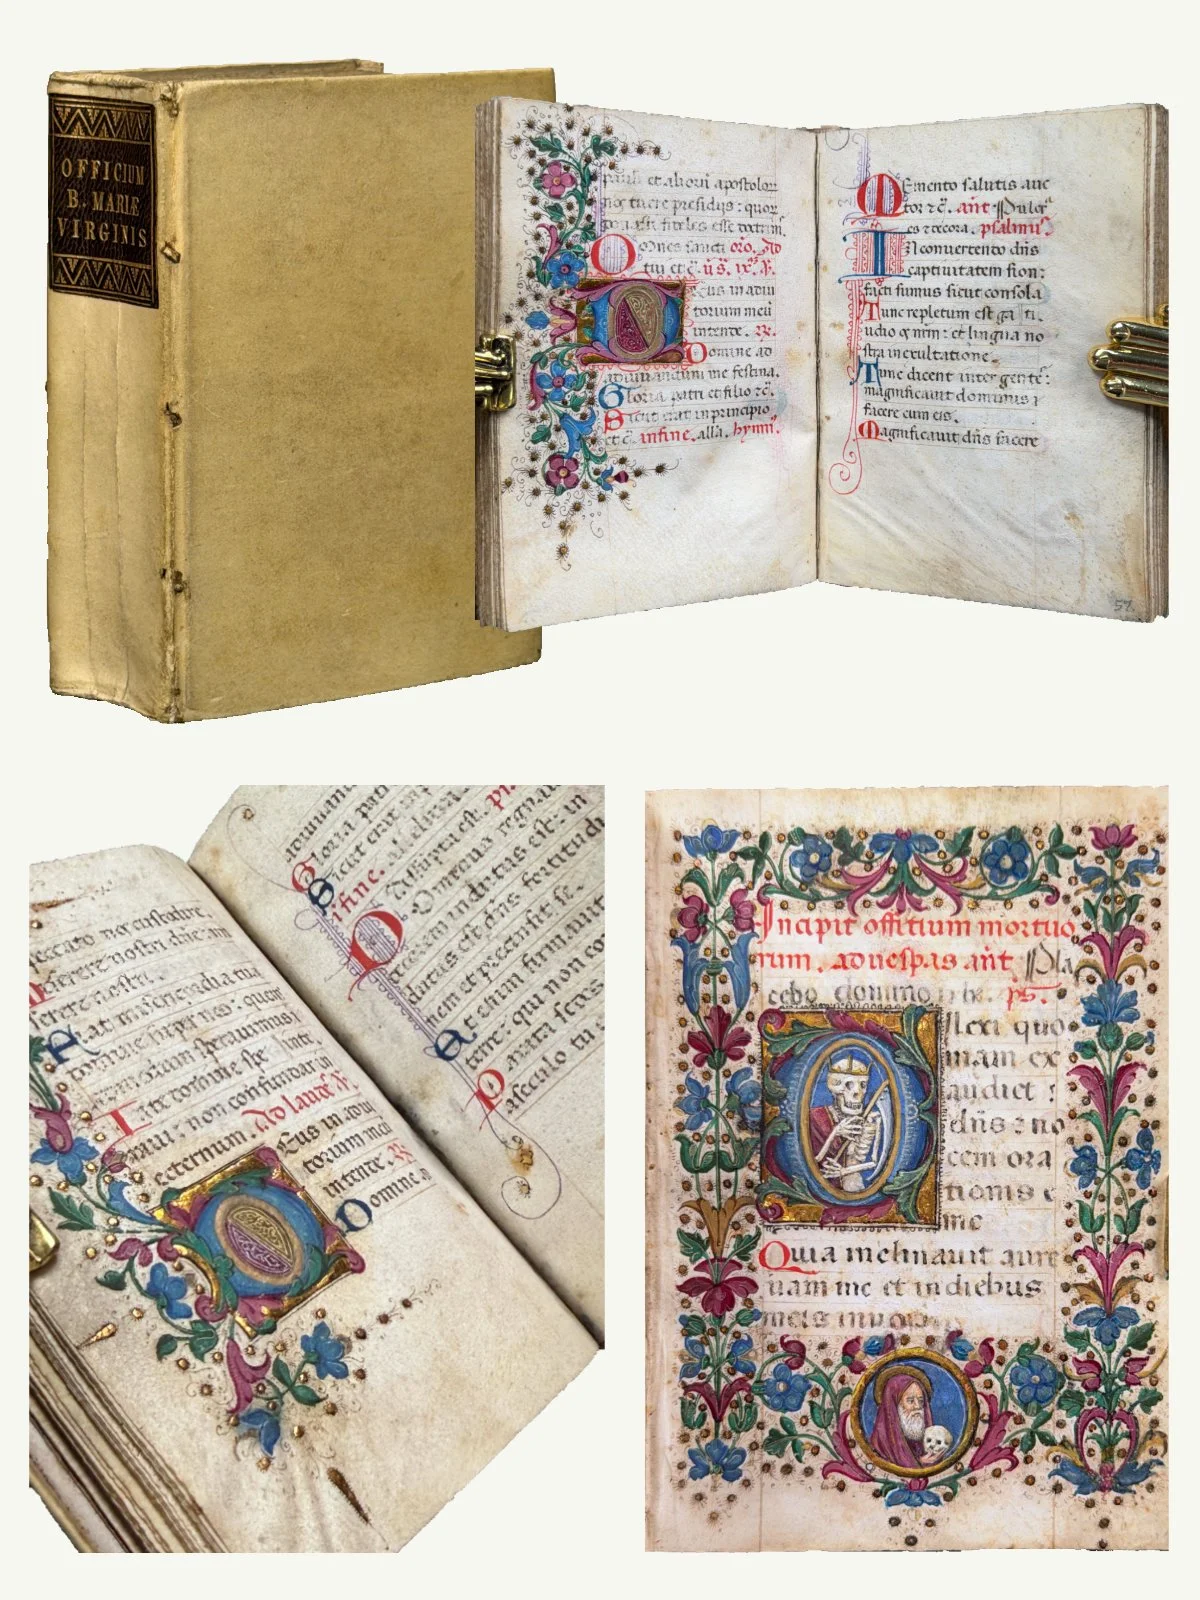 OFFICIUM
B. MARIÆ
VIRGINIS
et aliorū apostolor
nos tuere presidijs: quos
Omnes sancti oro. Ad
tui et c̄. ūs. ix. R.
Eus in adiu
torium meū
intende. R.
Domine ad
adiuuandum me festina.
Gloria patri et filio ⁊c̄.
Sicut erat in principio
et c̄. infine. alla. hymn⁹.
MEmento salutis auc
tor ⁊ c̄. añt Pulcr
es ⁊ decora. psalmus
IN conuertendo dn̄s
captiuitatem sion:
facti sumus sicut consola
Tunc repletum est ga
udio os nr̄m: et lingua no
stra in exultatione.
Tunc dicent inter gente:
magnificauit dominus
facere cum eis.
Magnificauit dn̄s facere
57.
peccato nos custodire.
iserere nostri dn̄e: mi
serere nostri.
Fiat misericordia tua
domine super nos: quem
speraui:
non confundar in
eternum. Ad laudes R.
Eus in adiu
torium meū
intende. R.
Domine a
Gloria pati
Sicut erat
infine.
Dominus regnau
decorem indutus est: in
dutus est dn̄s fortitudi
nem et precinxit se.
Et enim firmauit
terre: qui non co
Parata sedes
aseculo tu e
Incipit offitium mortuo
rum. ad uespas añt Pla
cebo domino ps.
ilexi quo
niam ex
audiet:
dn̄s: uo
cem ora
tionis
me
Quia inclinauit aure
suam mi et in diebus
meis inuo